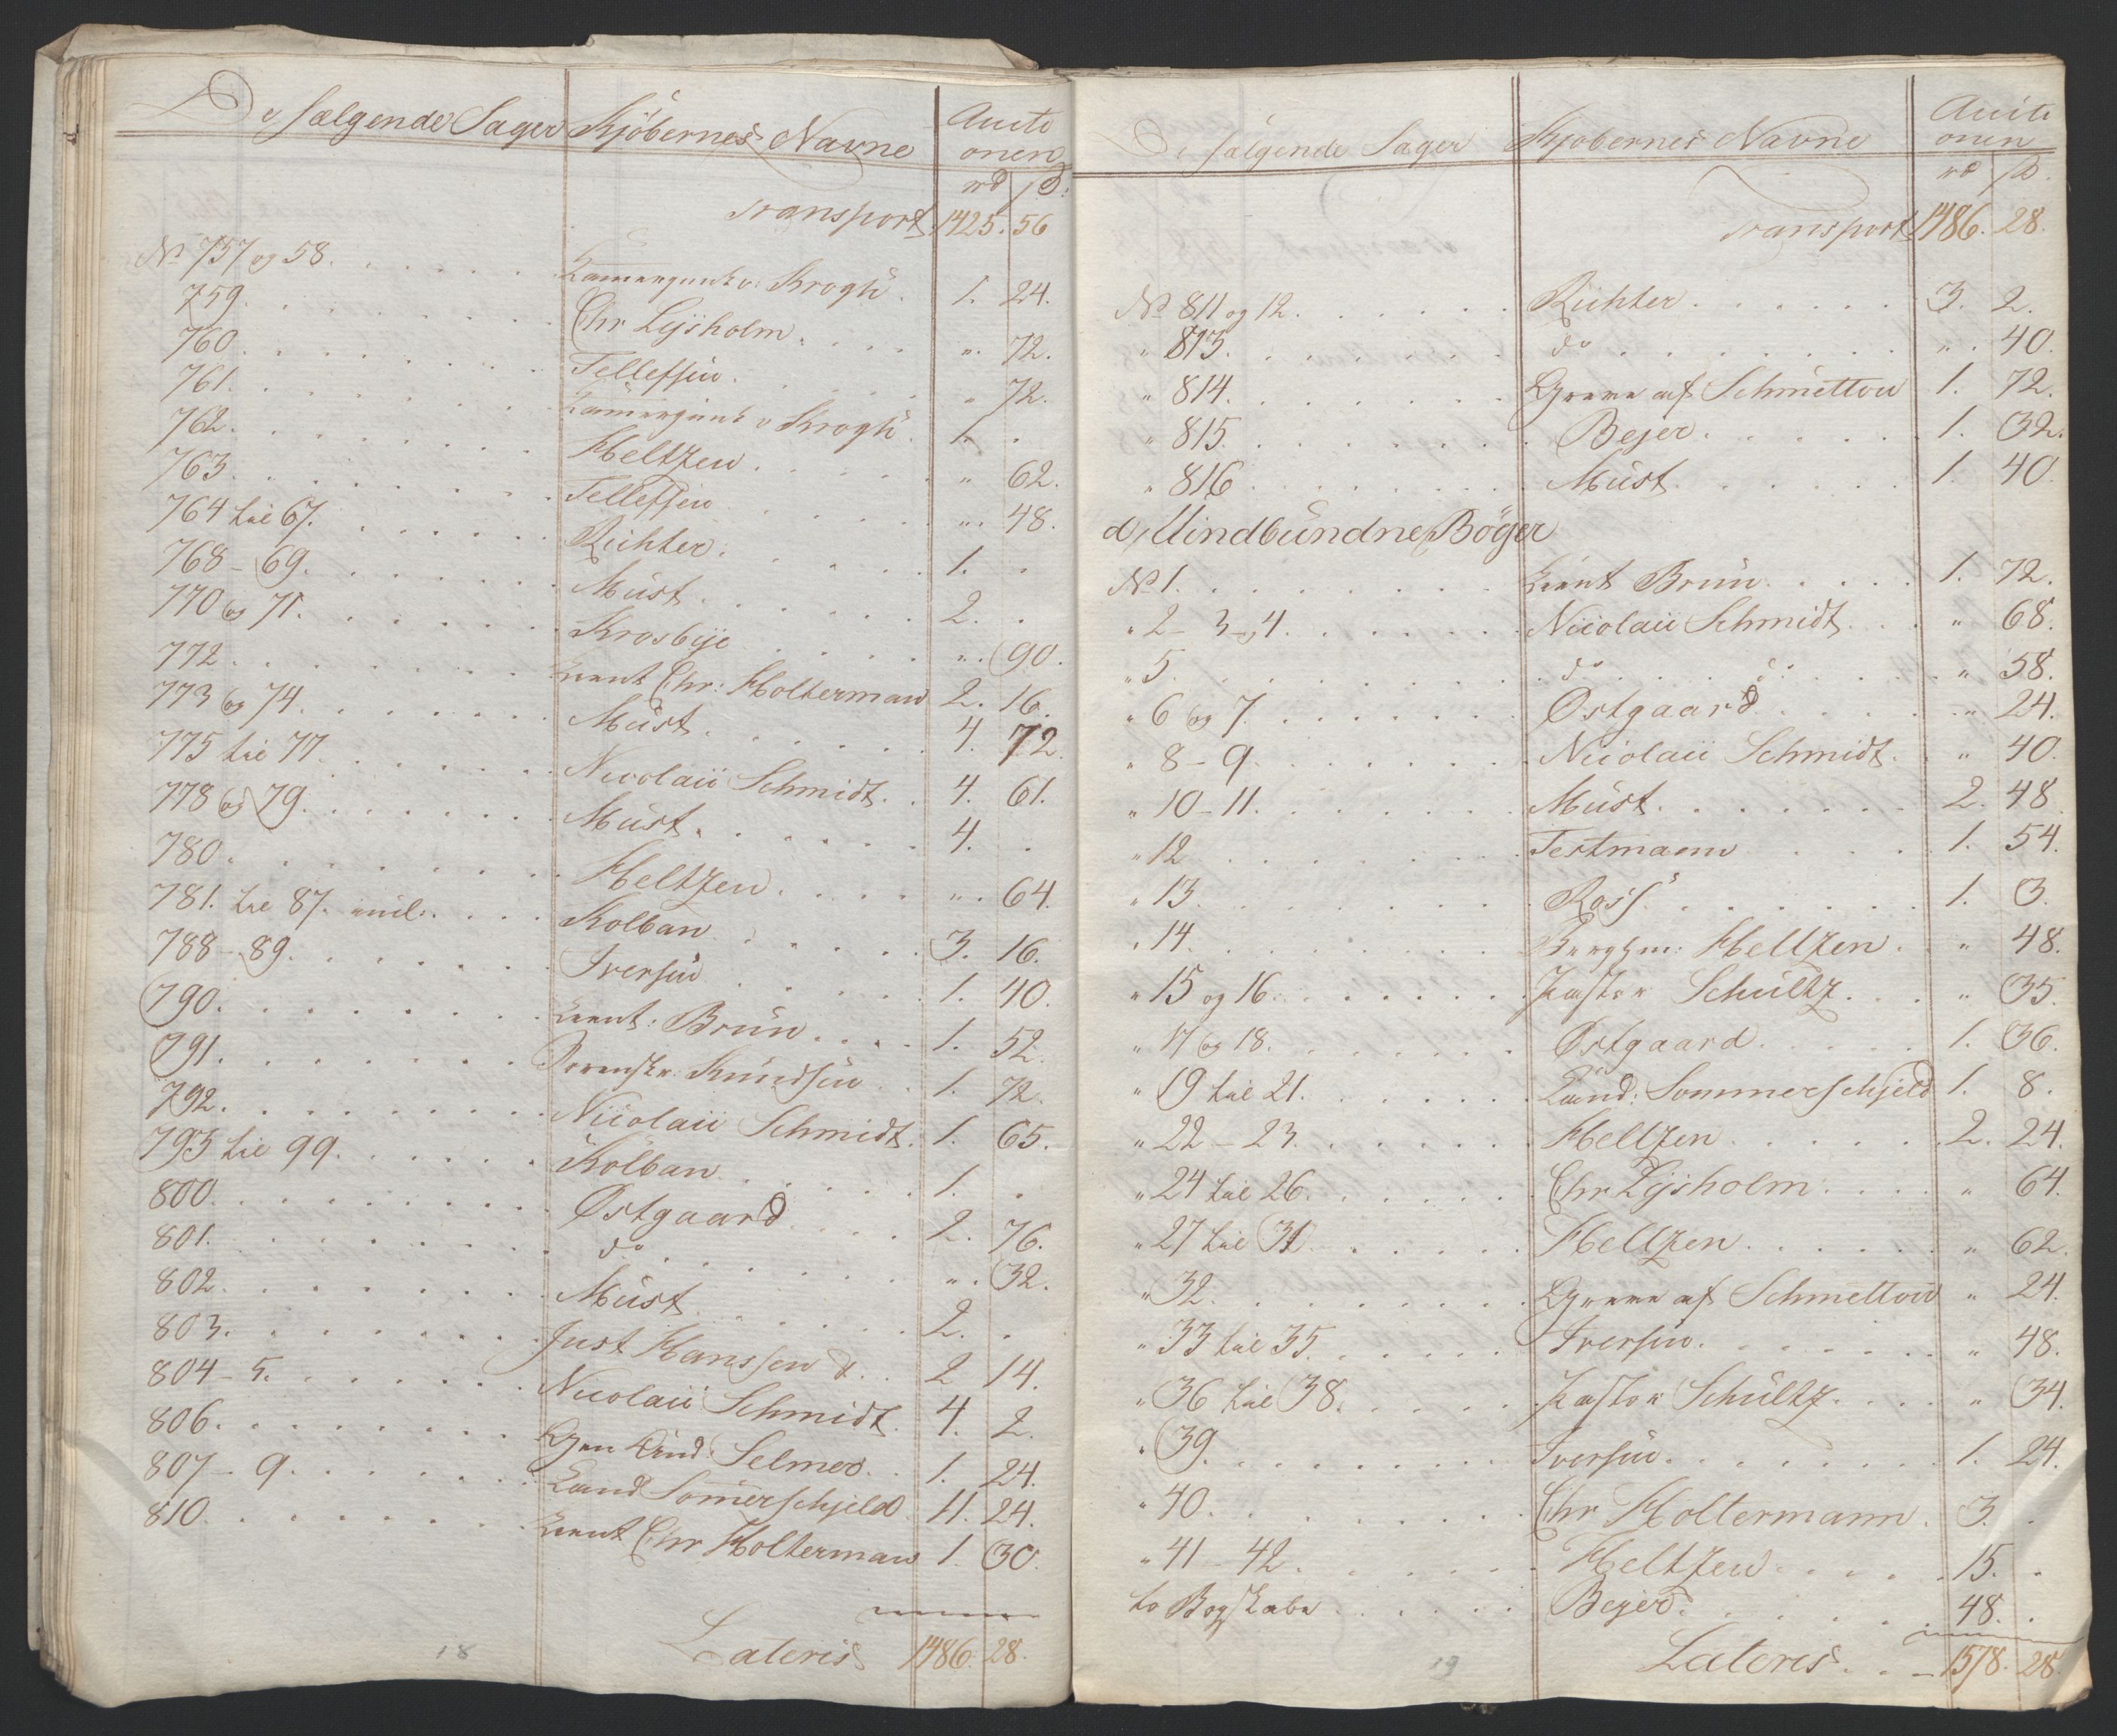 De sælgende Sager Kjøbernes Navne Aucti
onen
rd ß.
Transport 1425. 56
No 757 og 58. Kamerjunk v: Krogh. 1. 24.
759. Chr Lysholm. „. 72.
760. Tellefsen. „ 72.
761. Kamerjunk v Krogh. 1. .
762. Heltzen. „ 62.
763. Tellefsen „. 48.
764 til 67. Richter. 1. .
768 – 69. Must. 2. .
770 og 71. Krosbye „. 90.
772. Lieut Chr: Holterman 2. 16.
773 og 74. Must. 4. 72
775 til 77. Nicolaii Schmidt. 4. 61.
778 og 79. Must. 4. .
780. Heltzen. „. 64.
781. til 87. incl: Kolban 3. 16.
788 – 89. Iversen 1. 40.
790. Lieut: Brun. 1. 52.
791. Knudsen. 1. 72.
792. Nicolaii Schmidt. 1. 65.
793 til 99. Kolban. 1. .
800. Østgaard. 2. 76.
801. do „. 32.
802. Must. 2. .
803. Just Hanssen 2 14.
804 – 5. Nicolaii Schmidt. 4. 2.
806. Selmer. 1. 24.
807 – 9. Cand Somerschjeld 11. 24.
810. Lieut Chr Holterman 1. 30.
Lateris 1486. 28.
18
De sælgende Sager Kjøbernes Navne Aucti
onen
rd ß.
Transport 1486. 28.
No 811 og 12. Richter. 3. 2.
„ 813. do „. 40.
„ 814. Greve af Schmettou 1. 72.
„ 815. Bejer. 1. 32.
„ 816 Must 1. 40.
d, Uindbundne Bøger
No 1. Lieut Brun. 1. 72.
„ 2 – 3 – 4. Nicolaii Schmidt. „ 68.
„ 5. do do „ 58.
„ 6 og 7. Østgaard „ 24.
„ 8 – 9. Nicolaii Schmidt. „ 40.
„ 10 – 11. Must. 2. 48
„ 12 Testmann 1. 54.
„ 13. Ross. 1. 3.
„ 14. Heltzen. „ 48.
„ 15 og 16. Pastor Schultz. „ 35.
„ 17 og 18. Østgaard. 1. 36.
„ 19 til 21. Cand: Sommerschjeld 1. 8.
„ 22 – 23. Heltzen. 2. 24.
„ 24 til 26. Chr Lysholm. „ 64.
„ 27 til 31. Heltzen. „ 62.
„ 32. Greve af Schmettou „ 24.
„ 33 til 35. Iversen. „ 48.
„ 36 til 38. Pastor Schultz. „ 34.
„ 39. Iversen. 1. 24.
„ 40. Chr Holtermann. 3. .
„ 41 – 42. Heltzen. 15. .
to Bogskabe Bejer. 48. .
Lateris. 1578. 28
19